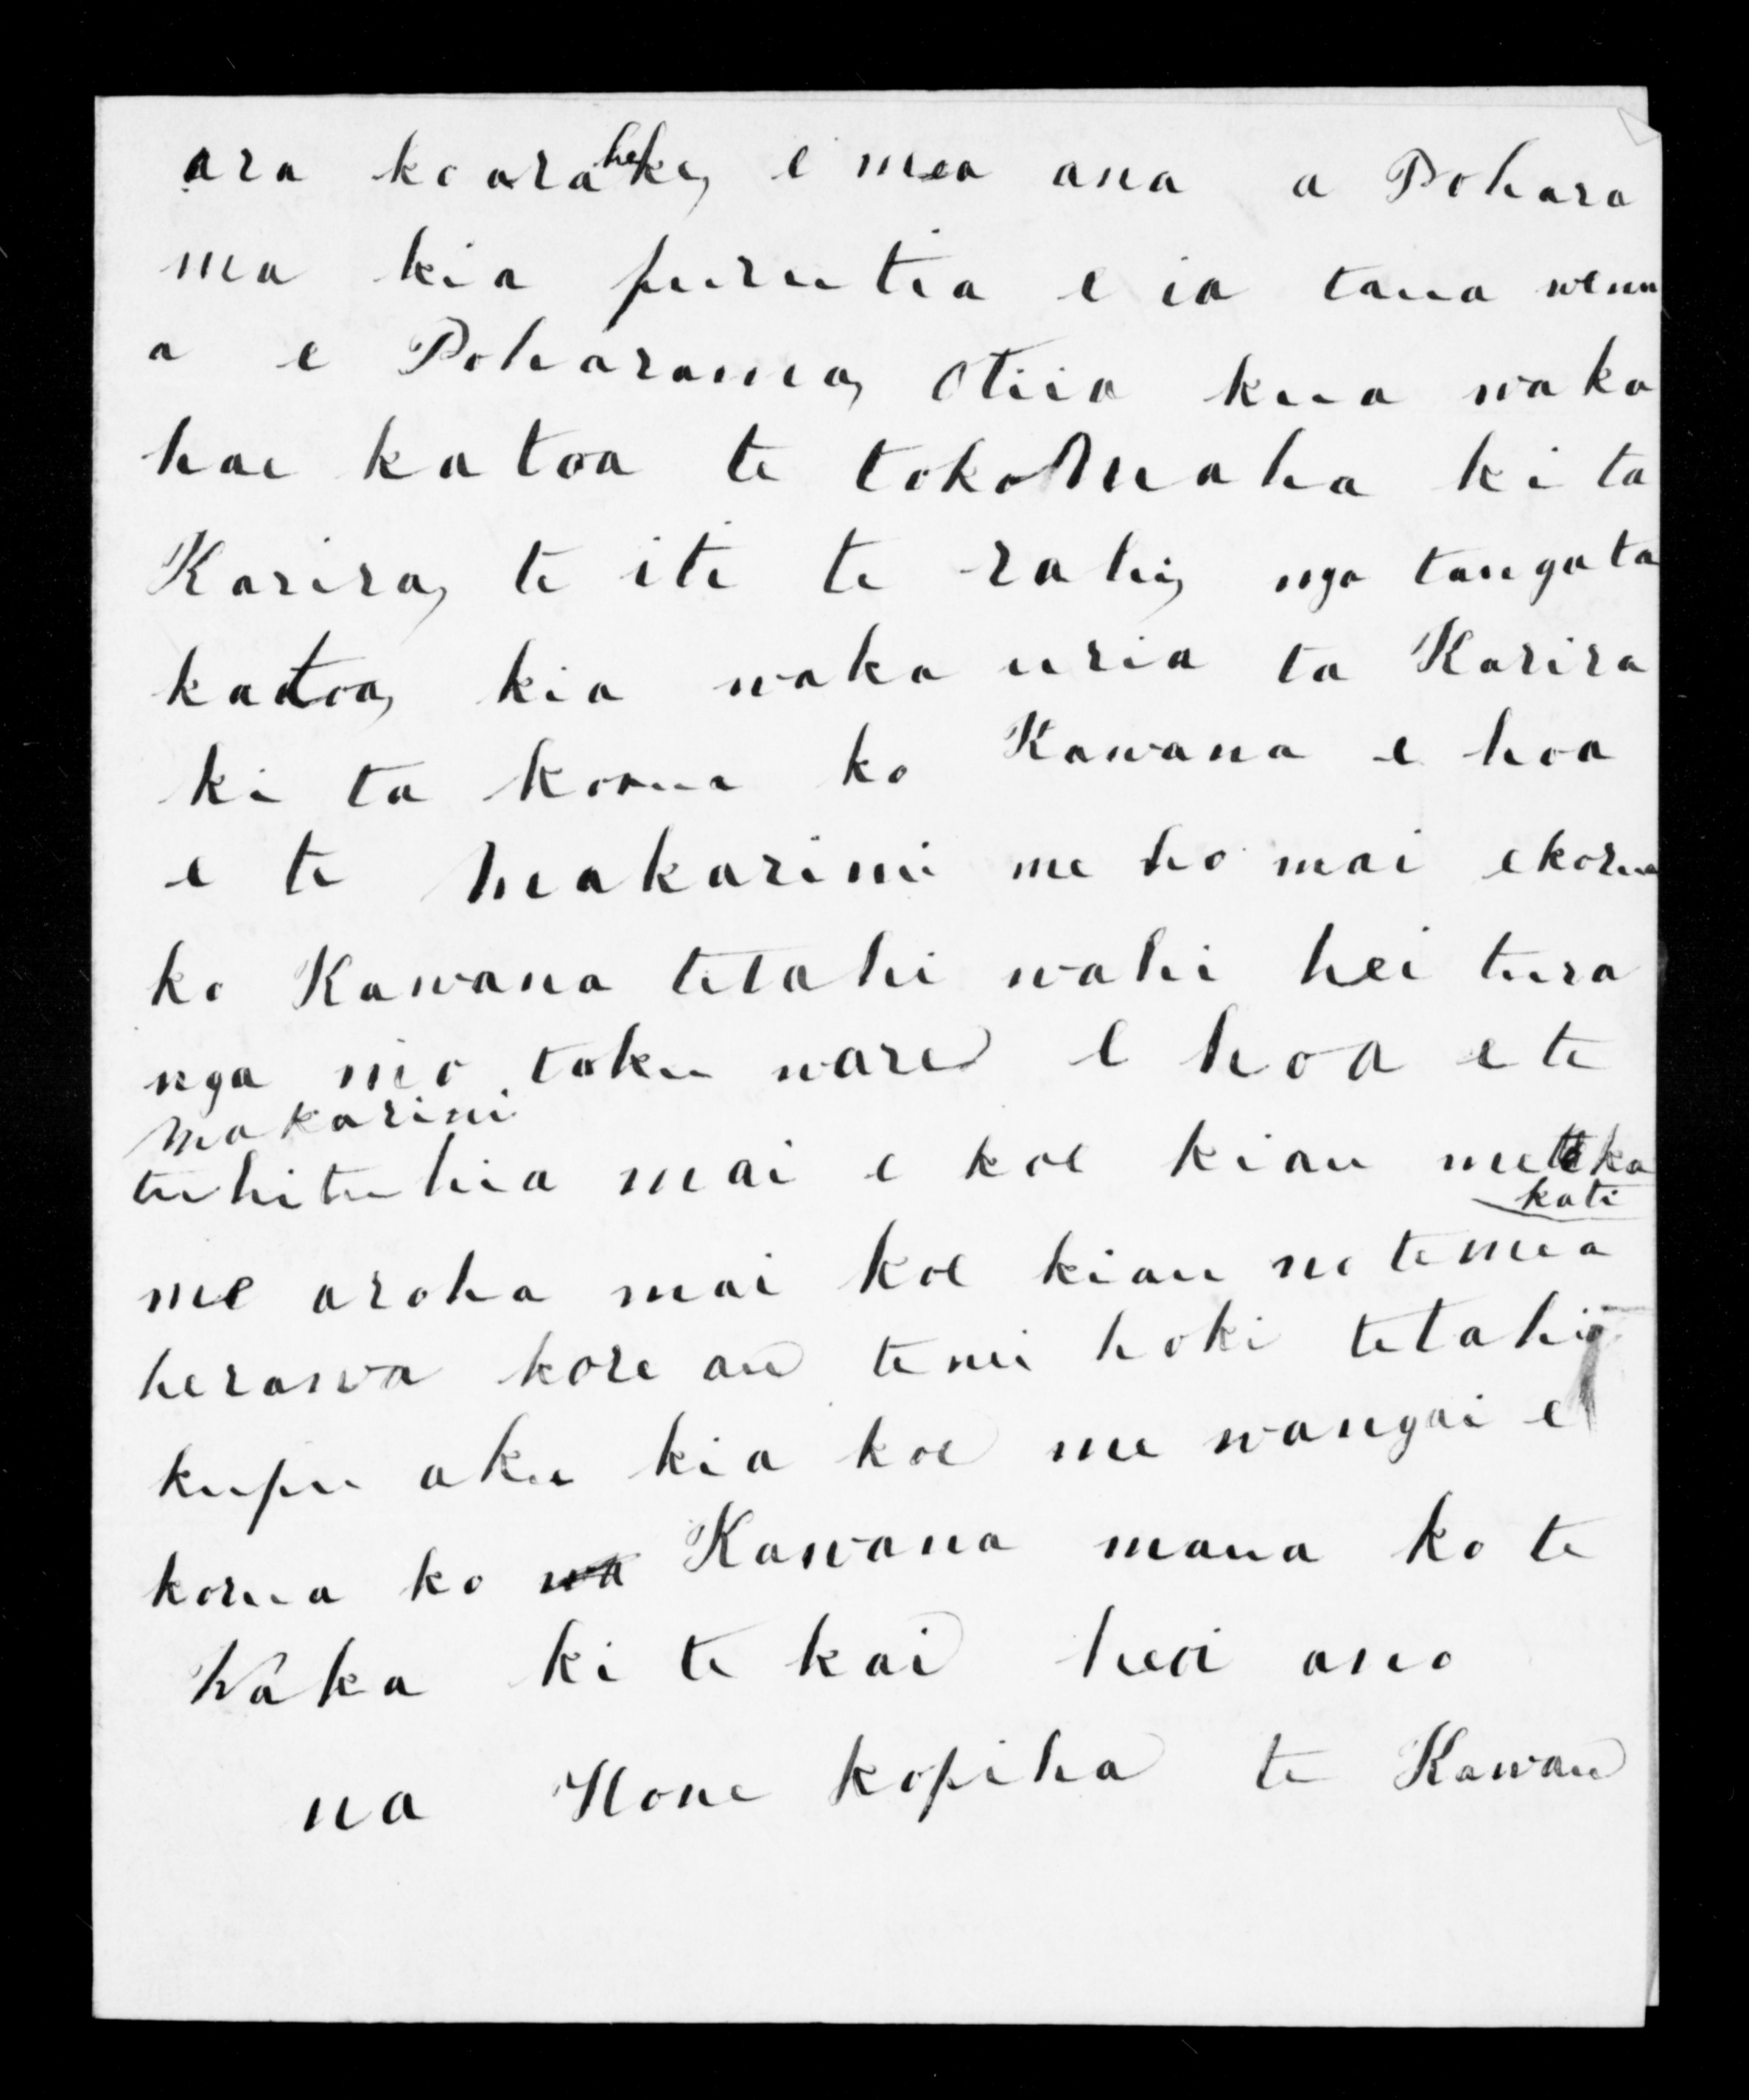 ara ko araheke, e mea ana a Pohara
ma kia purutia e ia tana wenu
a e Poharama, Otiia kua waka
hae katoa te tokoMaha ki ta
Karira, te iti te rahi, nga tangata
katoa, kia waka uria ta Karira
ki ta korua ko Kawana e hoa
e te Makarini me ho mai ekorua
ko Kawana tetahi wahi hei tura
nga mo toku ware e hoa e te
Makarini
tuhituhia mai e koe kiau meteka
kati
me aroha mai koe kiau notemea
herawa kore au tenei hoki tetahi
kupu aku kia koe me wangai e
korua ko wa Kawana mana ko te
Waka ki te kai heoi ano
na Hone kopiha te Kawau